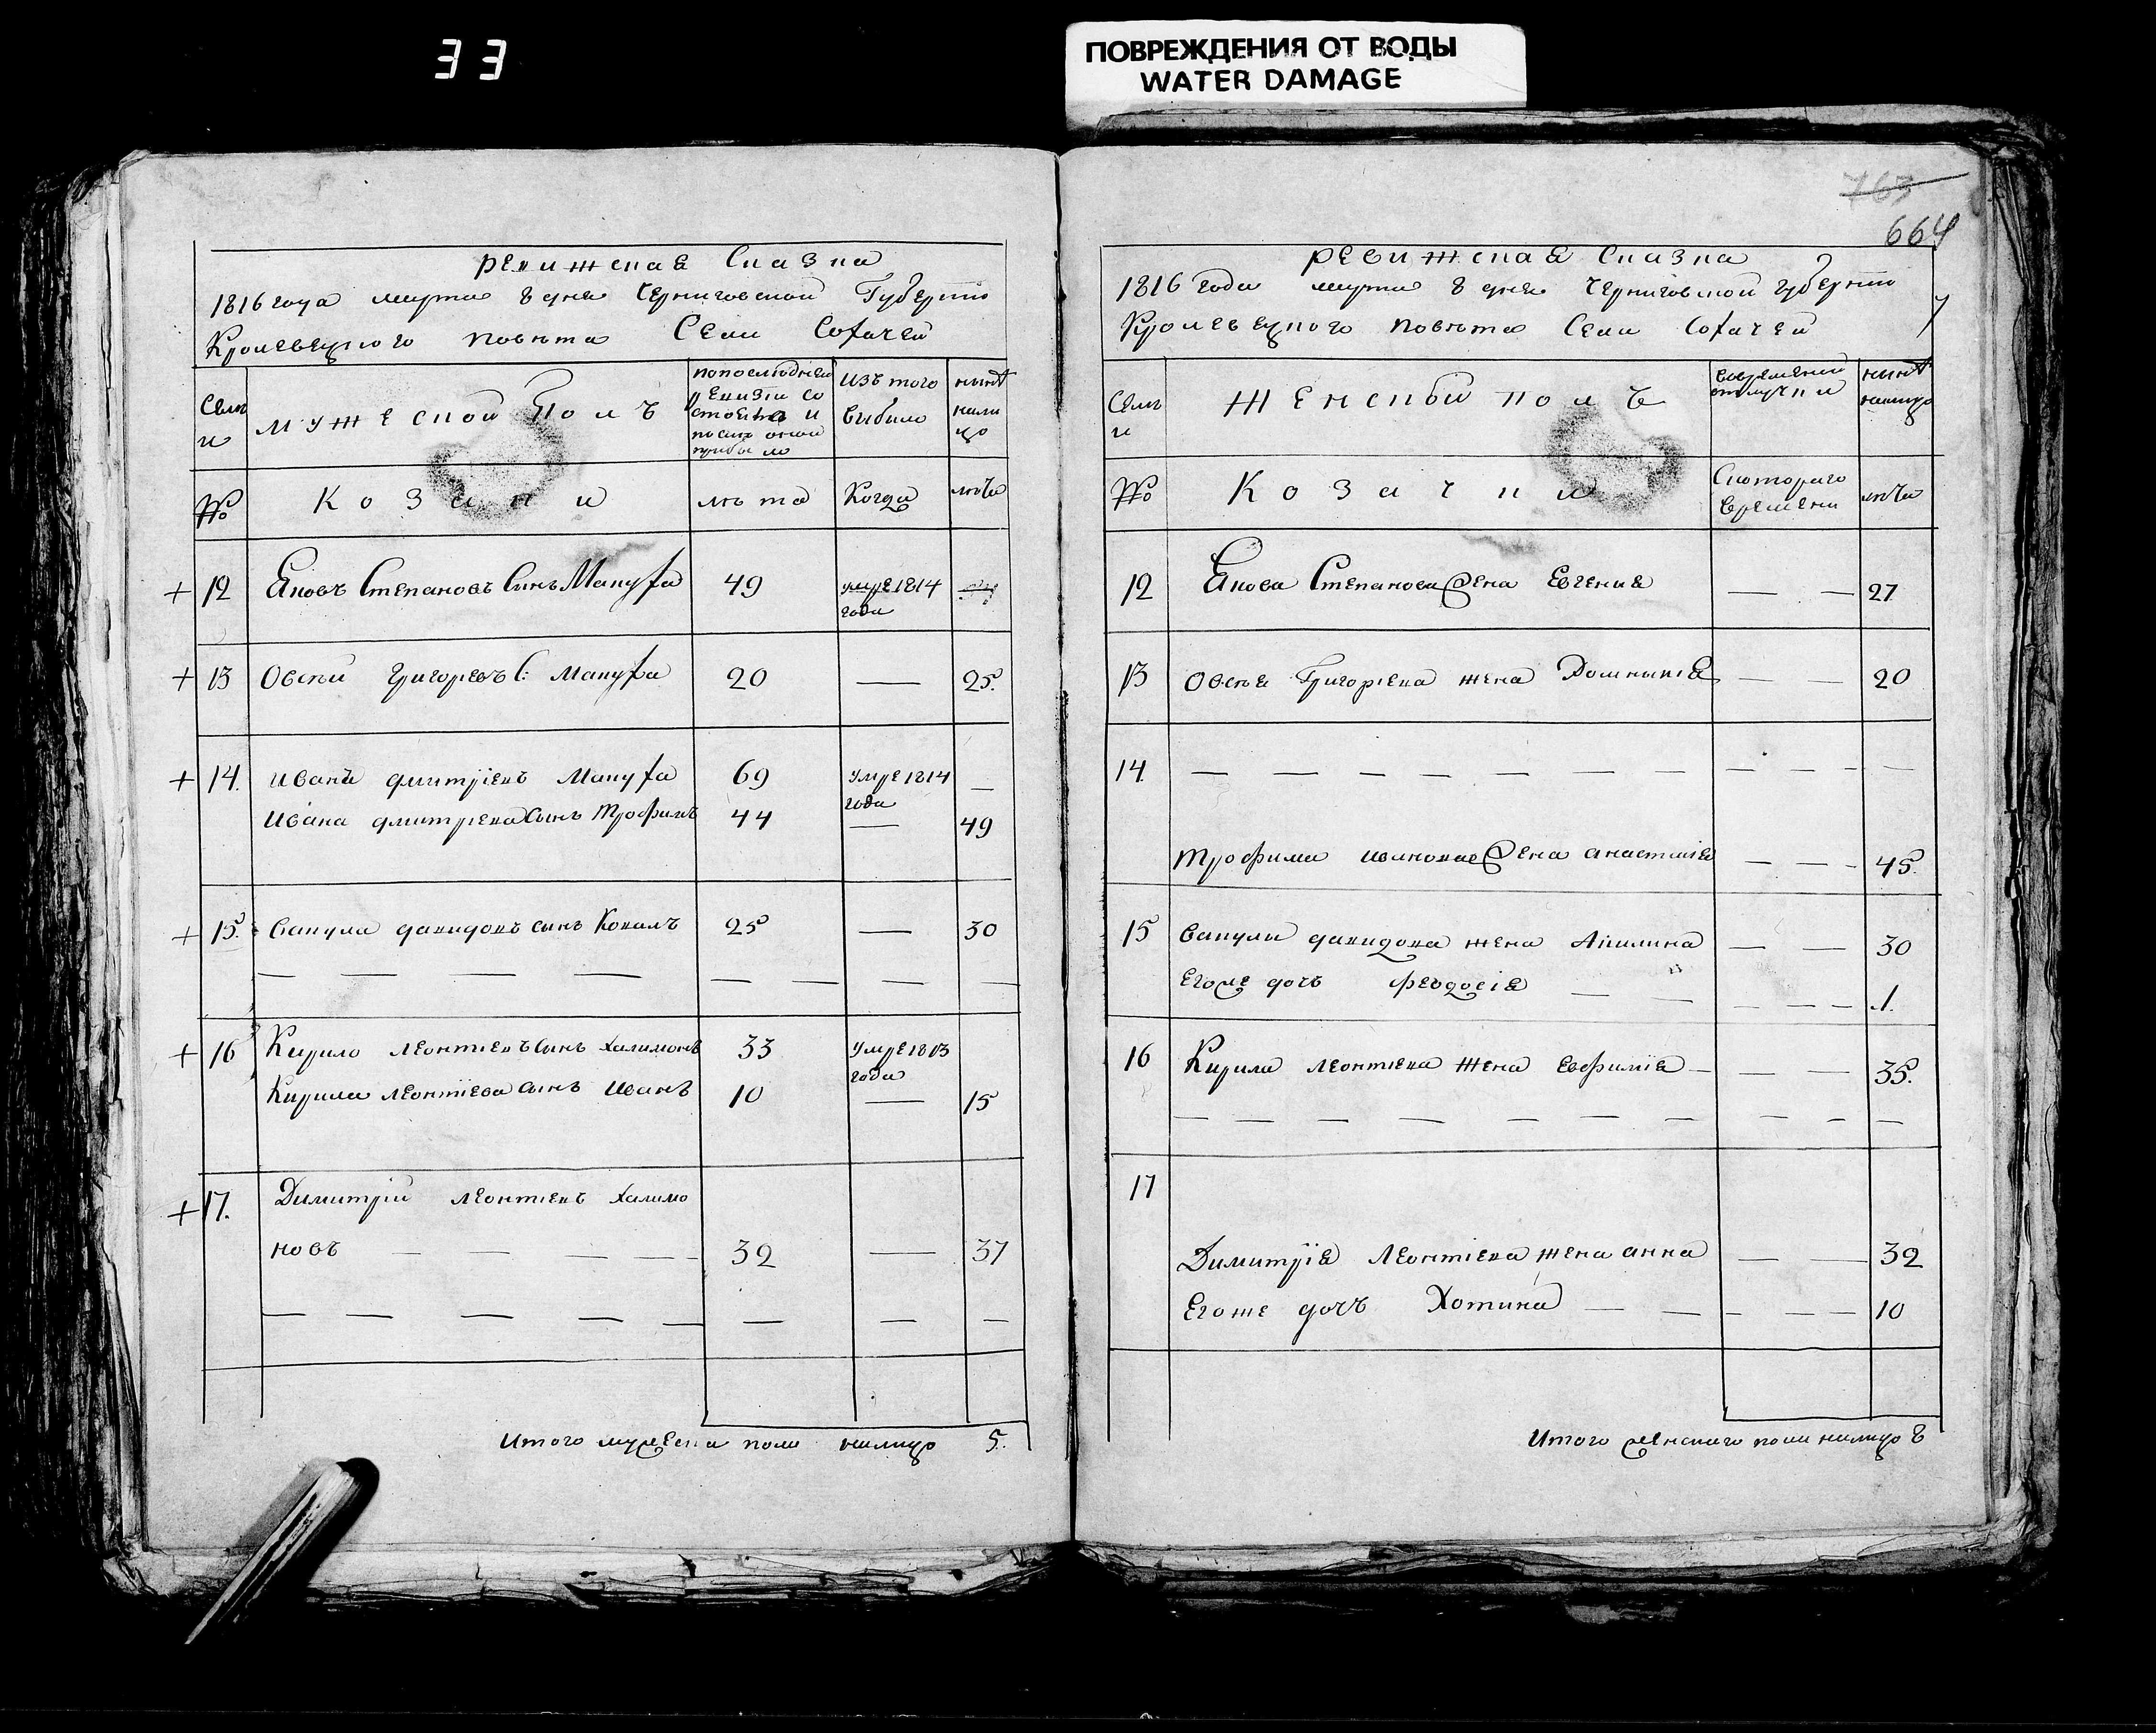 33
ПОВРЕЖДЕНИЯ ОТ ВОДЫ
WATER DAMAGE
Ревижская Сказка
1816 года марта 8 дня Черниговской Губернии
Кролевецкого повѣта Села Сохачей
Семьи
мужеской полъ
по последней ревизии состояло и после оной прибыло
изъ того выбыло
нынѣ налицо
№
Козаки
лѣта
Когда
лѣта
+ 12 Яковъ Степановъ Сынъ Мануха 49 умре 1814 года
+ 13 Овсѣй Григоревъ С: Мануха 20 — 25.
+ 14. Иванъ Дмитріевъ Мануха 69 умре 1814 года —
Ивана Дмитриева Сынъ Трофимъ 44 — 49
+ 15. Вакула Давидовъ сынъ Ковалъ 25 — 30
+ 16 Кирило Леонтиевъ Сынъ Халимонъ 33 умре 1813 года
Кирила Леонтиева сынъ Иванъ 10 — 15
+ 17. Димитрій Леонтиевъ Халимо
новъ — — — — 32 — 37
Итого мужеска пола налицо 5.
763
664
7
Ревижская Сказка
1816 года марта 8 дня Черниговской губернии
Кролевецкого повѣта Села Сохачей
Семьи
Женский полъ
во временной отлучки
нынѣ налицо
№
Козачки
С котораго времени
лѣта
12 Якова Степанова Жена Евгения — — 27
13 Овсѣя Григориева жена Домникия — — 20
14. — — — — — — — — — — — —
Трофима Иванова Жена Анастасия — — - 45.
15 Вакулы Давидова жена Акилина — — 30
Егоже дочъ Феодосія — — - — — 1.
16 Кирила Леонтиева Жена Евфимія — — — 35.
17
Димитрія Леонтиева жена Анна — — 32
Егоже дочъ Хотина — — - — — 10
Итого женскаго пола налицо 8